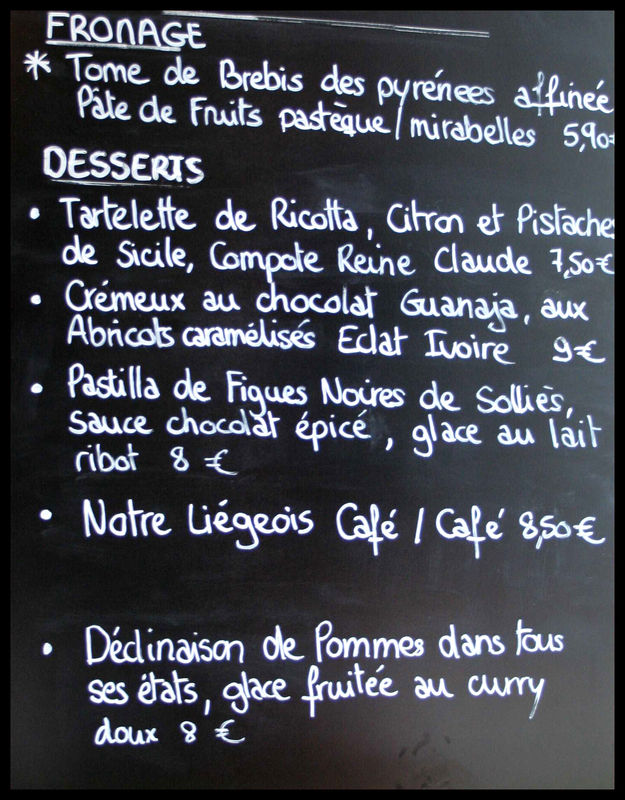 FRONAGE
* Tome de Brebis des pyrénées affinée
Pâte de Fruits pastèque / mirabelles 5,90€
DESSERTS
• Tartelette de Ricotta, Citron et Pistaches
de Sicile, Compote Reine Claude 7,50€
• Crémeux au chocolat Guanaja, aux
Abricots caramélisés Eclat Ivoire 9€
• Pastilla de Figues Noires de Solliès,
sauce chocolat épicé, glace au lait
ribot 8 €
• Notre Liégeois Café / Café 8,50€
• Déclinaison de Pommes dans tous
ses états, glace fruitée au curry
doux 8 €